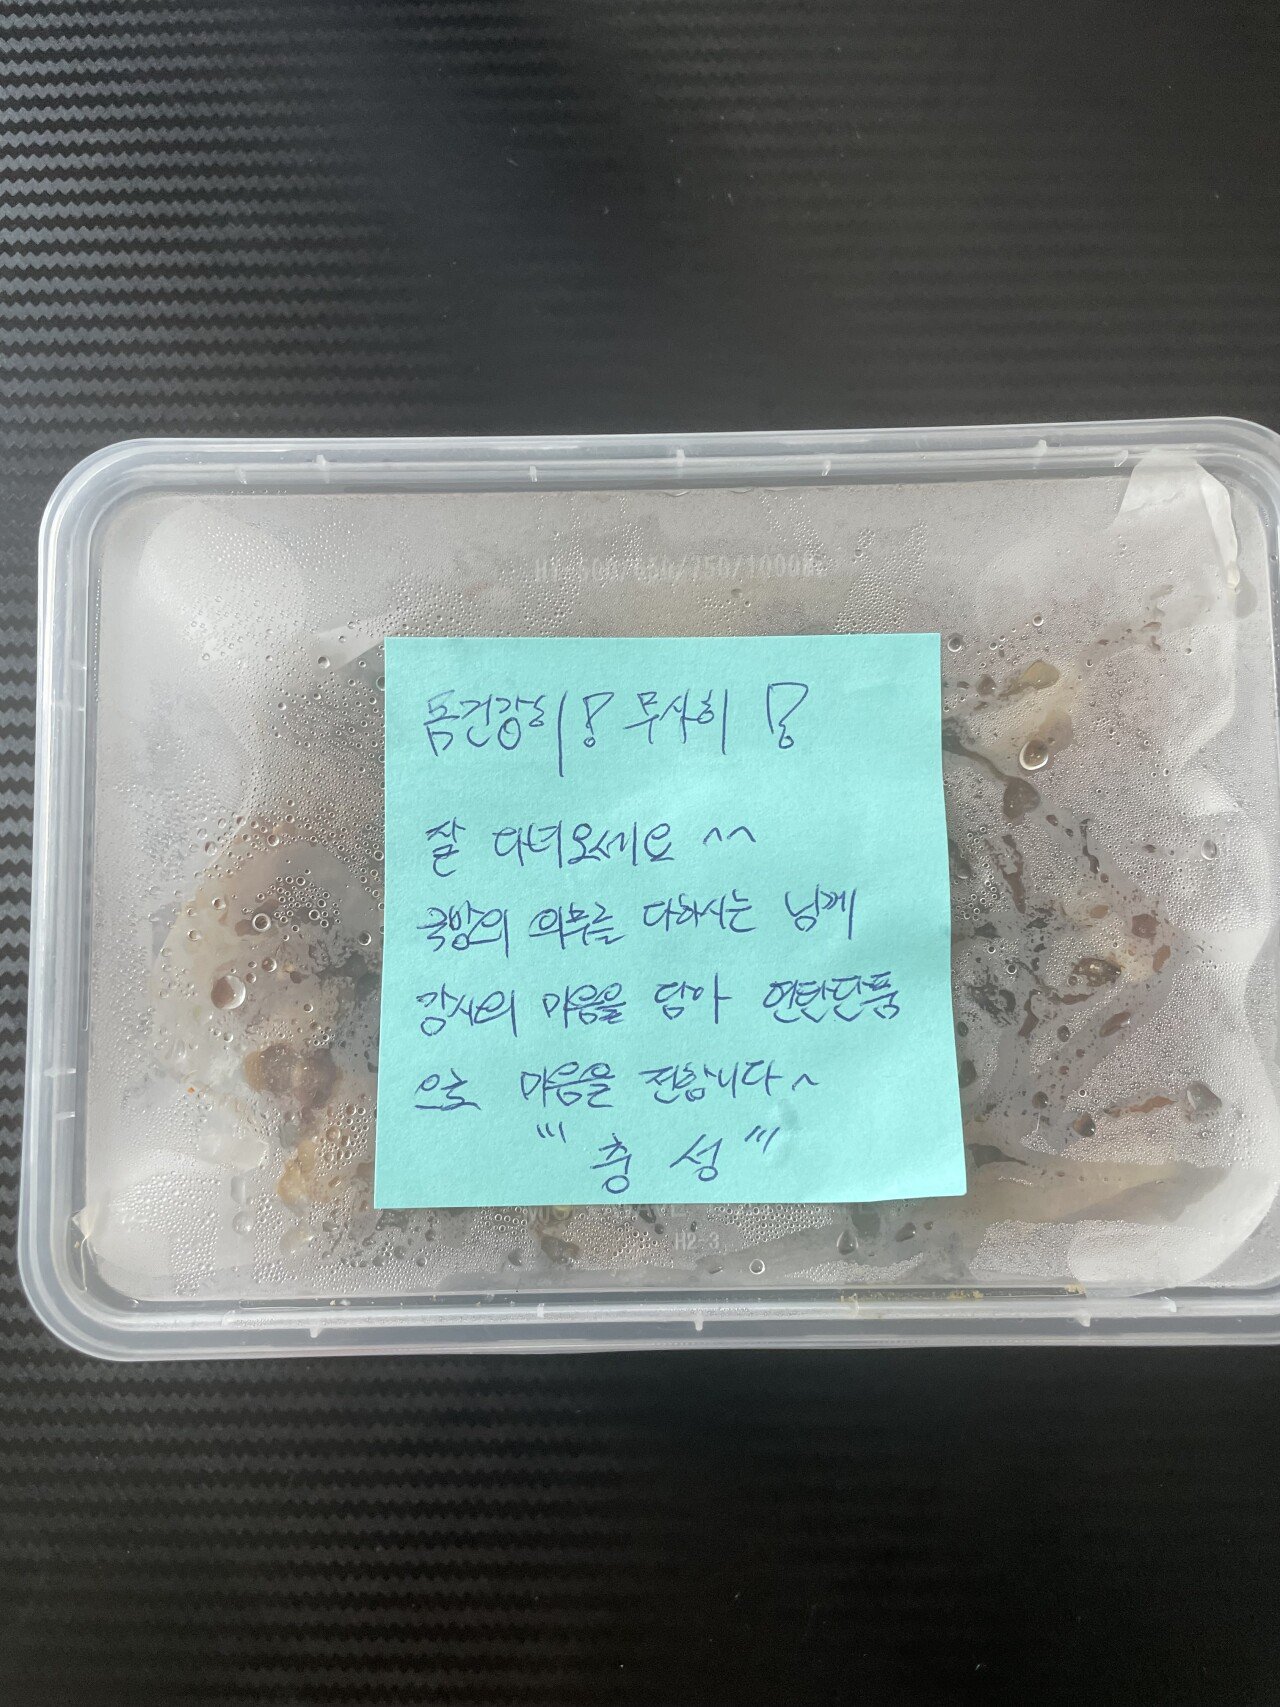 몸건강히! 무사히!
잘 다녀오세요 ^^
국방의 의무를 다하시는 님께
감사의 마음을 담아 연탄단품
으로 마음을 전합니다^
"' 충성 "'
H2-3